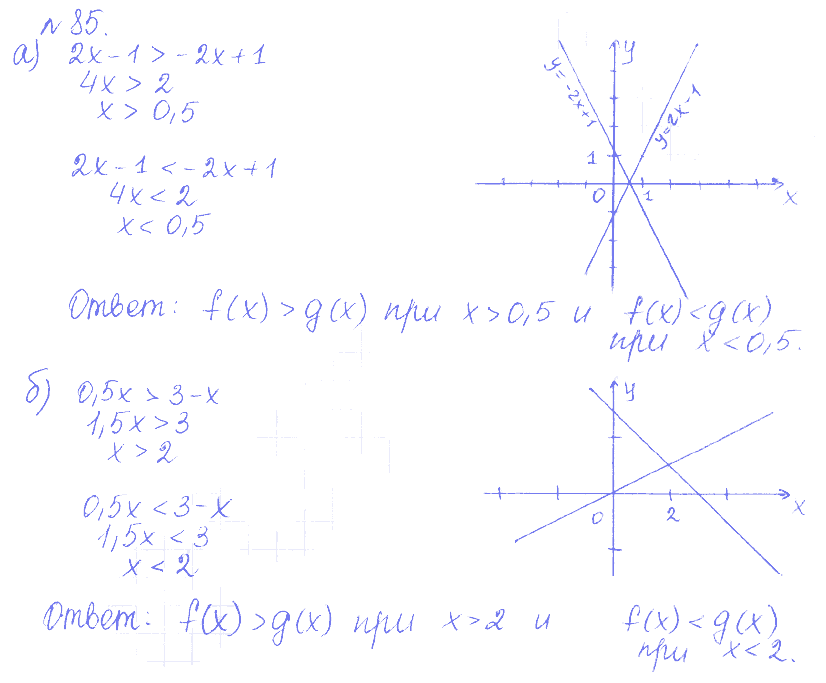 № 85.
а) 2x-1 > -2x+1
4x > 2
x > 0,5
2x-1 < -2x+1
4x < 2
x < 0,5
y
y=-2x+1
y=2x-1
1
0
1
x
Ответ: f(x) > g(x) при x > 0,5 и f(x) < g(x)
при x < 0,5.
б) 0,5x > 3-x
1,5x > 3
x > 2
0,5x < 3-x
1,5x < 3
x < 2
y
0
2
x
Ответ: f(x) > g(x) при x > 2 и f(x) < g(x)
при x < 2.